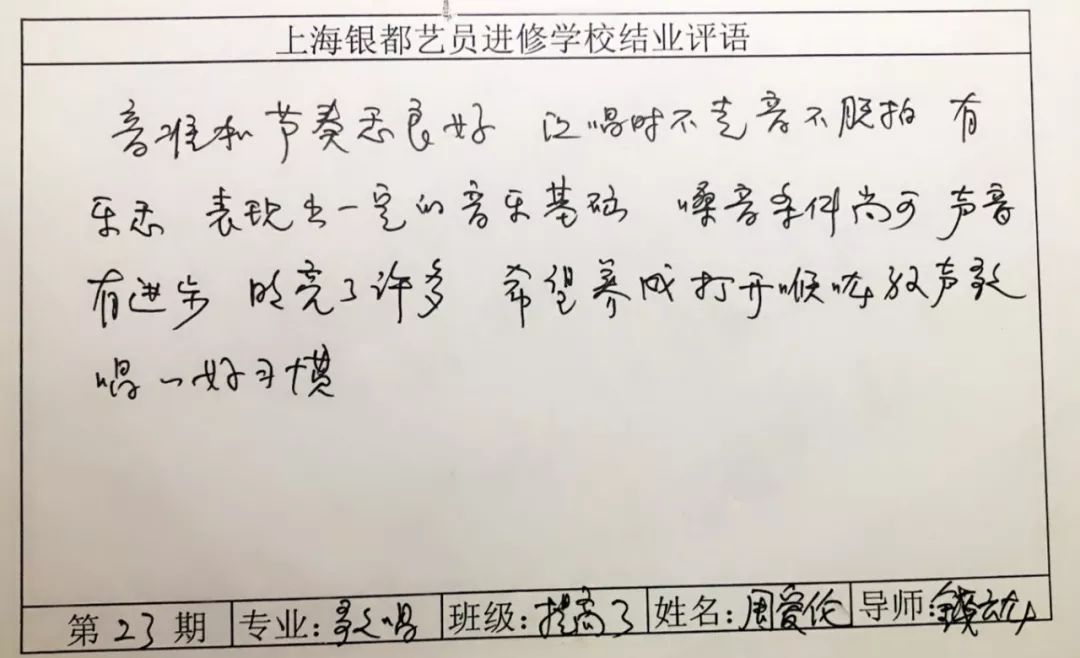 上海银都艺员进修学校结业评语
音准和节奏感良好 演唱时不走音不脱拍 有
乐感 表现出一定的音乐基础 嗓音条件尚可 声音
有进步 明亮了许多 希望养成打开喉咙放声歌
唱的好习惯
第23期 专业:歌唱 班级:提高3 姓名:周爱伦 导师:钱